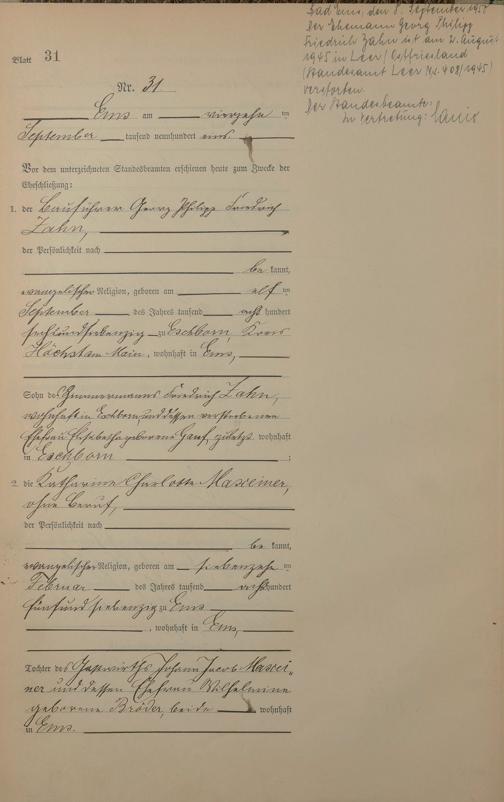 Blatt 31
Bad Ems, den 8. September 1955
Der Ehemann Georg Philipp
Friedrich Zahn ist am 2. August
1945 in Leer (Ostfriesland
(Standesamt Leer Nr. 408/1945)
verstorben.
Der Standesbeamte:
In Vertretung:
Nr. 31
Ems am vierzehn ten
September tausend neunhundert eins.
Vor dem unterzeichneten Standesbeamten erschienen heute zum Zwecke der
Eheschließung:
1. der Bauführer Georg Philipp Friedrich
Zahn,
der Persönlichkeit nach
be kannt,
evangelischer Religion, geboren am elf ten
September des Jahres tausend acht hundert
sechsundsiebenzig zu Eschborn, Kreis
Höchst am Main, wohnhaft in Ems,
Sohn des Zimmermanns Friedrich Zahn,
wohnhaft in Eschborn, und dessen verstorbenen
Ehefrau Elisabetha geborene Graf, zuletzt wohnhaft
in Eschborn ;
2. die Katharine Charlotte Maxeiner,
ohne Beruf,
der Persönlichkeit nach
be kannt,
evangelischer Religion, geboren am siebenzehn ten
Februar des Jahres tausend acht hundert
fünfundsiebenzig zu Ems
, wohnhaft in Ems,
Tochter des Gastwirths Johann Jacob Maxei-
ner und dessen Ehefrau Wilhelmine
geborene Bröder, beide wohnhaft
in Ems.